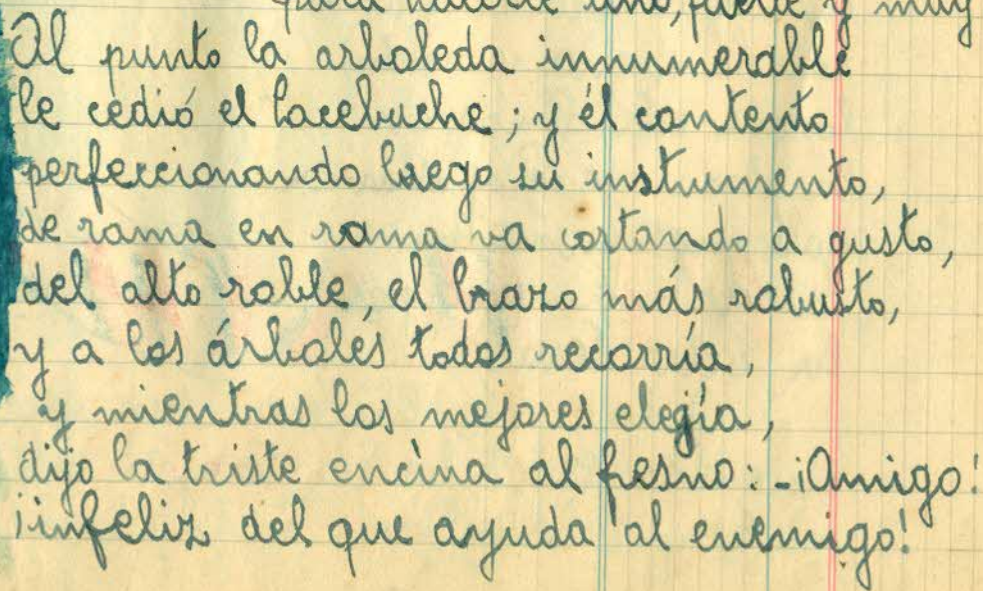 para hacerle uno, fuerte y muy
Al punto la arboleda innumerable
le cedió el lacebuche; y él contento
perfeccionando luego su instrumento,
de rama en rama va cortando a gusto,
del alto roble, el brazo más robusto,
y a los árboles todos recorría,
y mientras los mejores elegía,
dijo la triste encina al fresno: -¡Amigo!
¡infeliz del que ayuda al enemigo!